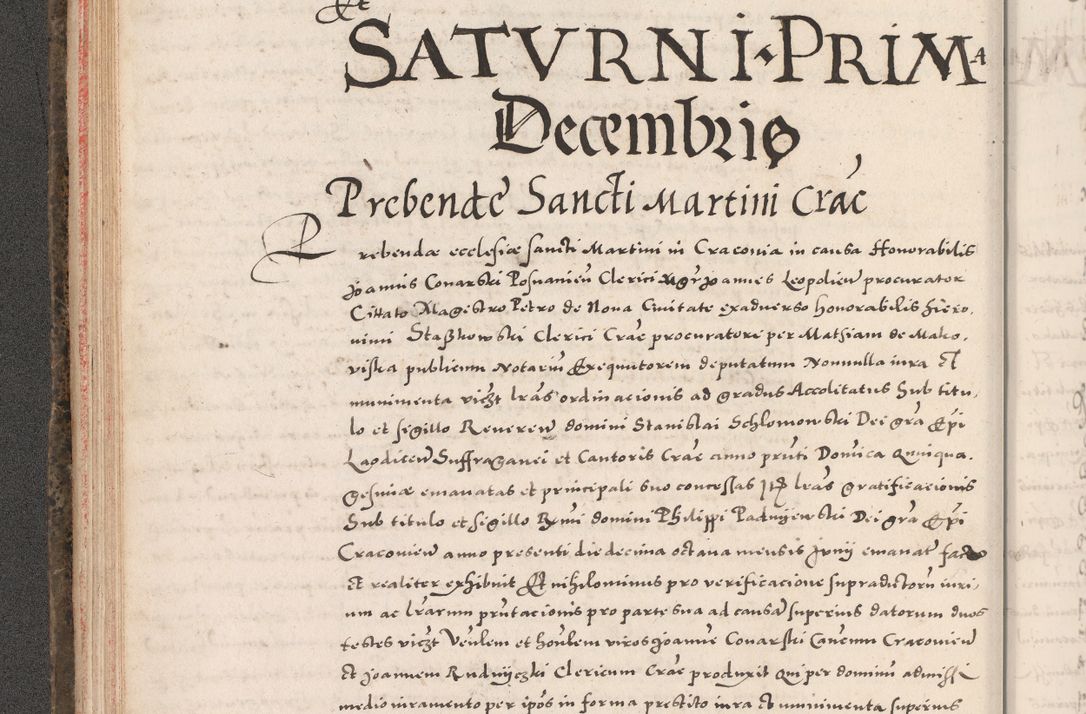 Et
SATVRNI·PRIMA
Decembris
Prebende Sancti Martini Crac
Prebendæ ecclesiæ sancti Martini in Craconia in causa Honorabilis
Joannis Conarski Posnanien Clerici Mgr Joannes Leopolien procurator
Cittato Magestro Petro de Nova Civitate exadverso honorabilis Hiero,
nimi Staßkowski Clerici Crac procuratore per Mathiam de Mako,
viska publicum Notarium Exequutorem deputatum Nonnulla iura Et
munimenta viczt lras ordinacionis ad gradus Accolitatus Sub titu,
lo et sigillo Reveren domini Stanislai Schlomowski Dei gra Epi
Laodicen Suffraganei et Cantoris Crac anno pnti Domica Quinqua,
gesimæ emanatas et principali suo concessas Itq lras gratificacionis
Sub titulo et sigillo Rmi domini Philippi Padnijewski Dei gra Epi
Cracovien anno presenti die decima octava mensis Junij emanat facto
et realiter exhibuit Et nihilominus pro verificacione supradictoru iuri,
um ac lrarum pntacionis pro parte sua ad causa superius datorum duos
testes viczt Venlem et honlem viros Joanne Conarski Cancum Cracovien
et Joannem Rudnijczki Clericum Crac produxit Qui per dominu admissi
medio iuramento per ipos in forma prestito iura et munimenta superius